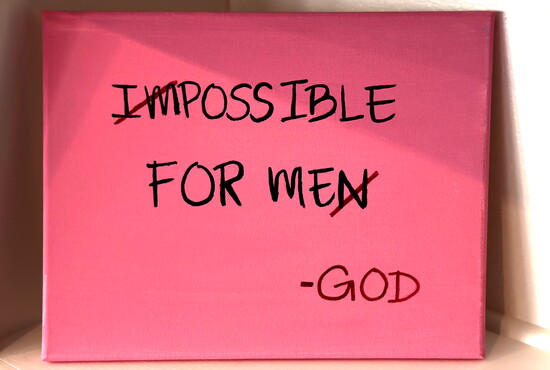 IMPOSSIBLE
FOR MEN
-GOD